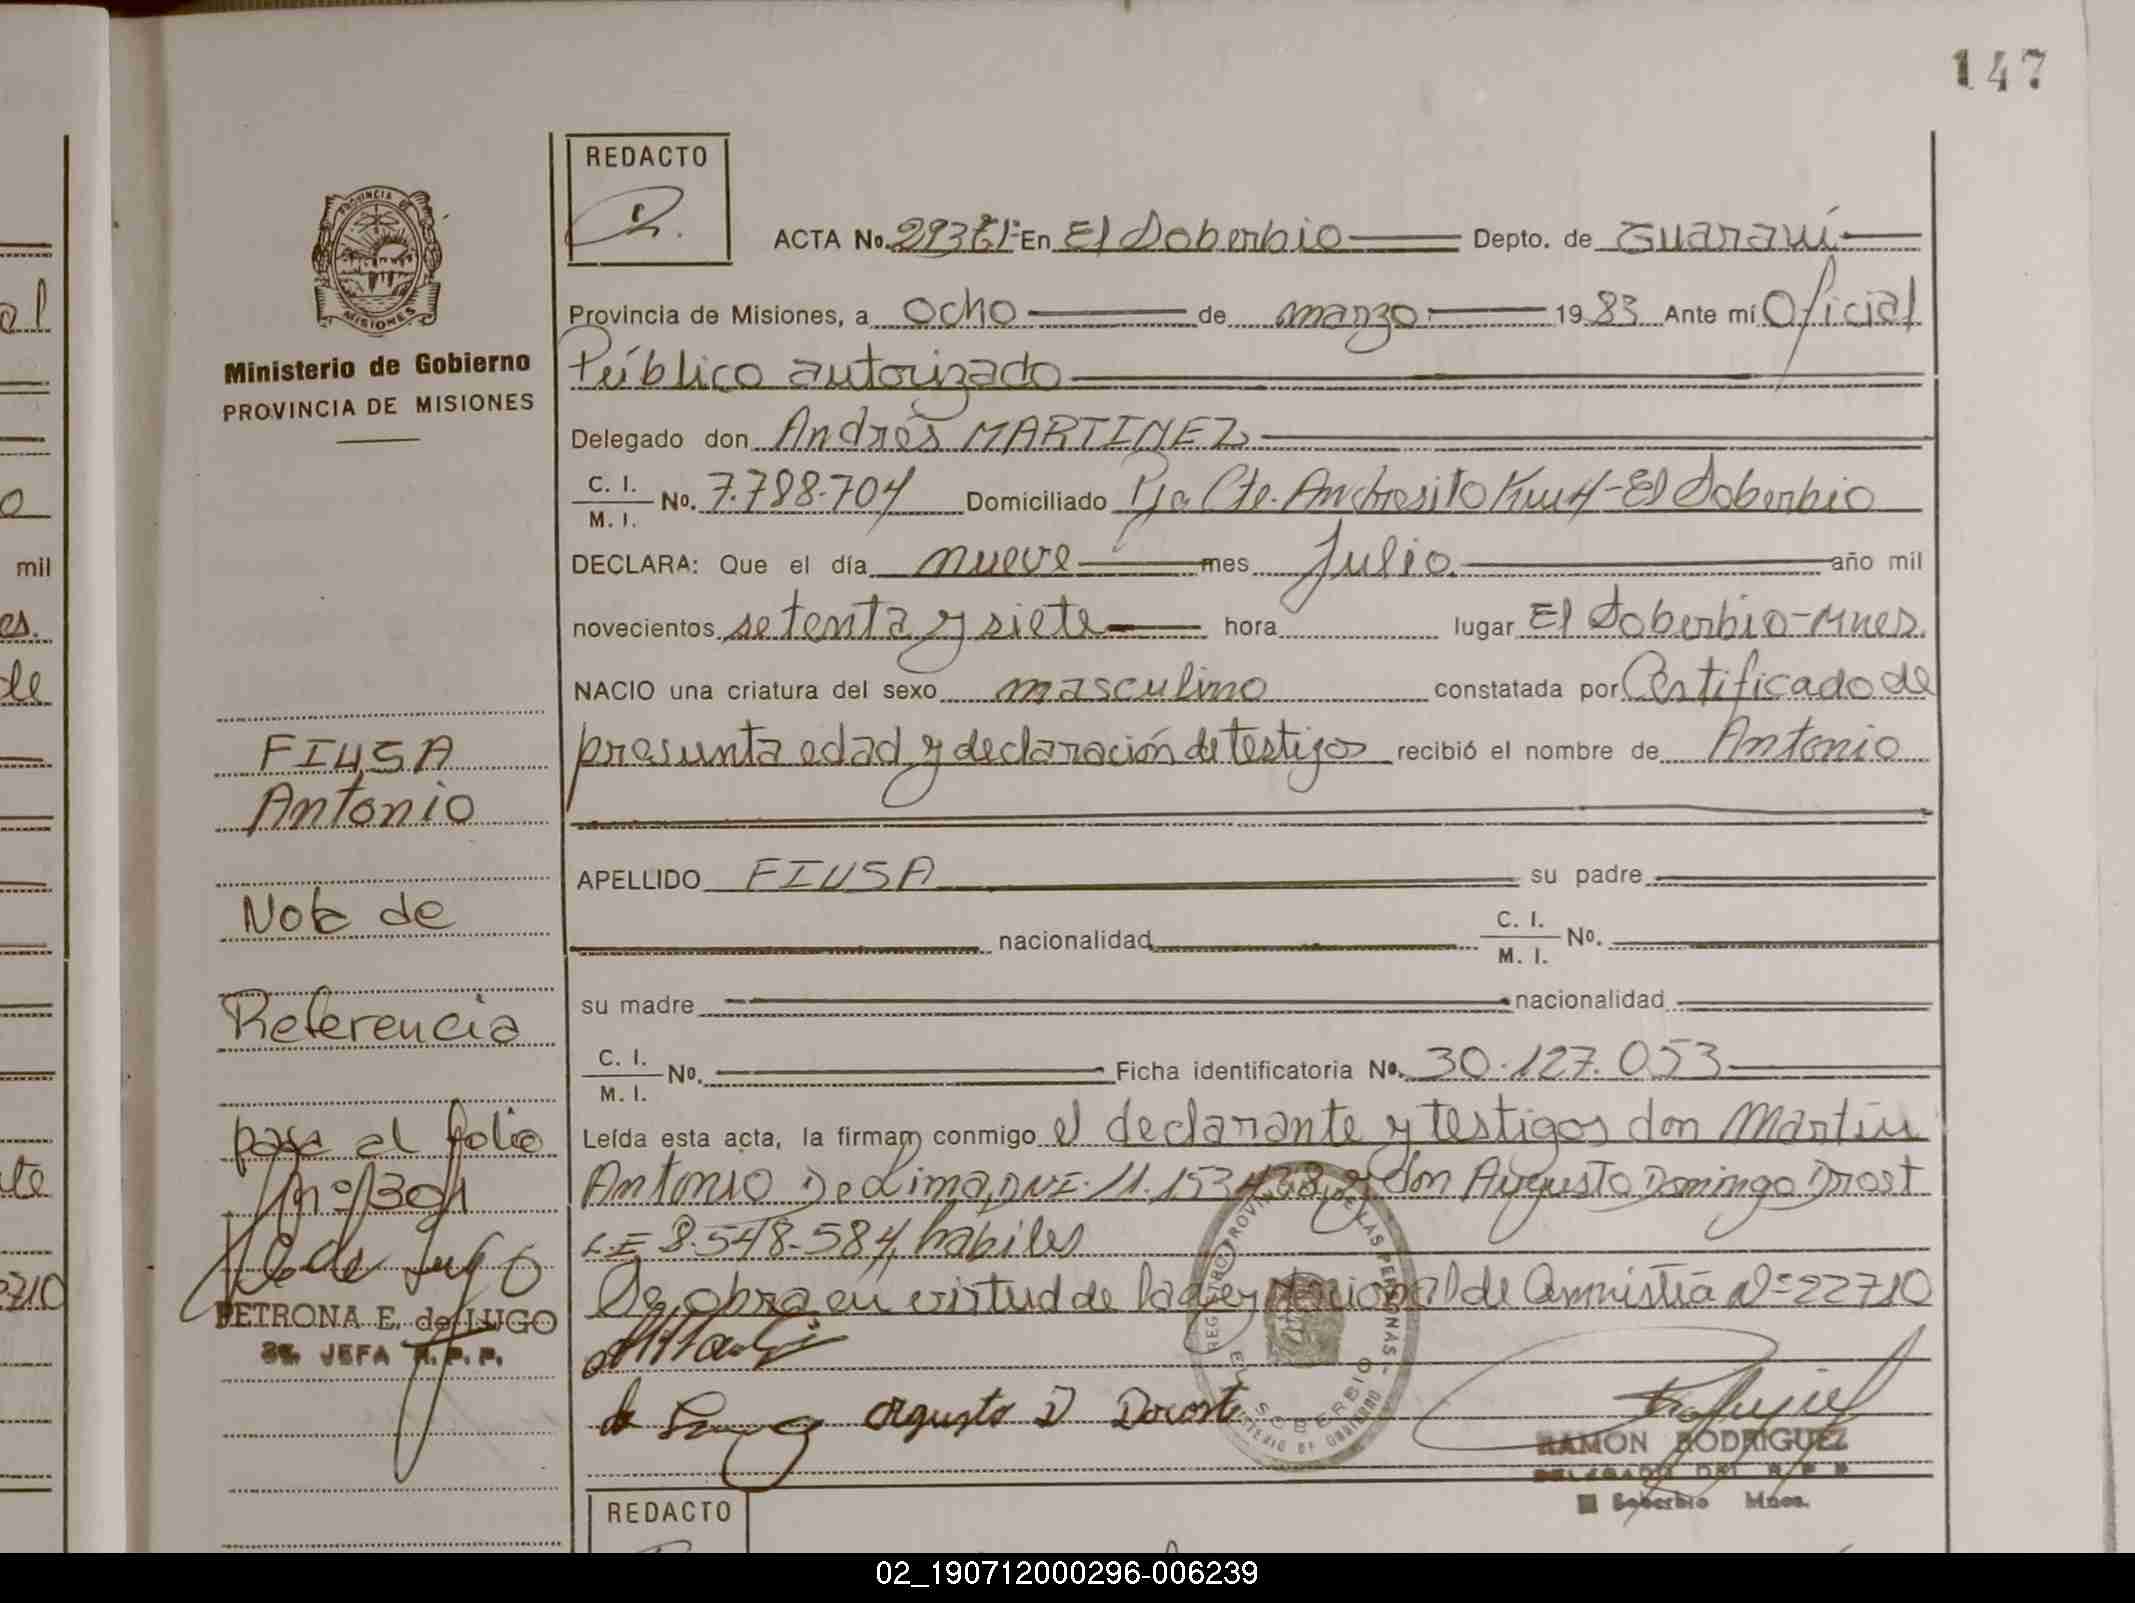 147
REDACTO
ACTA No. En El Soberbio Depto. de Guaraní
Provincia de Misiones, a ocho de marzo 1983 Ante mí Oficial
Público autorizado
Delegado don Andrés MARTINEZ
C. I.
M. I.
No. 7.788.704 Domiciliado Andresito El Soberbio
DECLARA: Que el día nueve mes Julio año mil
novecientos setenta y siete hora lugar El Soberbio-Mnes.
NACIO una criatura del sexo masculino constatada por Certificado de
presunta edad y declaración de testigos recibió el nombre de Antonio
APELLIDO FIUSA su padre
nacionalidad
C. I.
M. I.
No.
su madre nacionalidad
C. I.
M. I.
No. Ficha identificatoria No. 30.127.053
Leída esta acta, la firman conmigo el declarante y testigos don Martin
Antonio De Lima, DNI. 11.153.438 y don Augusto Domingo Drost
L.E 8.548.584, habiles
obra en virtud de la ley Nacional de Amnistía Nº 22710
RAMON RODRIGUEZ
DELEGADO DEL R P P
El Soberbio Mnes.
REDACTO
PROVINCIA DE
MISIONES
Ministerio de Gobierno
PROVINCIA DE MISIONES
FIUSA
Antonio
Nota de
Referencia
pasa al folio
nº 301
PETRONA E. de LUGO
JEFA R.P.P.
mil
02_190712000296-006239